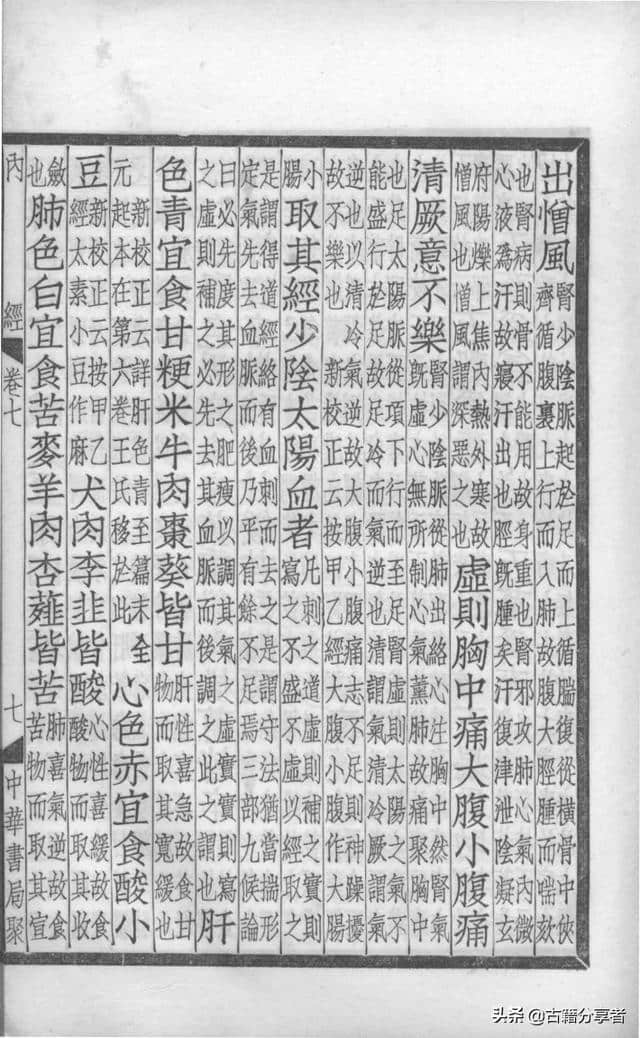 出憎風腎少陰脈起於足而上循腨復從橫骨中俠
齊循腹裏上行而入肺故腹大脛腫而喘欬
也腎病則骨不能用故身重也腎邪攻肺心氣內微
心液爲汗故寢汗出也脛既腫矣汗復津泄陰凝玄
府陽爍上焦內熱外寒故
憎風也憎風謂深惡之也虛則胸中痛大腹小腹痛
清厥意不樂腎少陰脈從肺出絡心注胸中然腎氣
既虛心無所制心氣薰肺故痛聚胸中
也足太陽脈從項下行而至足腎虛則太陽之氣不
能盛行於足故足冷而氣逆也清謂氣清冷厥謂氣
逆也以清冷氣逆故大腹小腹痛志不足則神躁擾
故不樂也 新校正云按甲乙經大腹小腹作大腸
小
腸取其經少陰太陽血者凡刺之道虛則補之實則
寫之不盛不虛以經取之
是謂得道經絡有血刺而去之是謂守法猶當揣形
定氣先去血脈而後乃平有餘不足焉三部九候論
曰必先度其形之肥瘦以調其氣之虛實實則寫
之虛則補之必先去其血脈而後調之此之謂也肝
色青宜食甘粳米牛肉棗葵皆甘肝性喜急故食甘
物而取其寬緩也
新校正云詳肝色青至篇末全
元起本在第六卷王氏移於此心色赤宜食酸小
豆新校正云按甲乙
經太素小豆作麻犬肉李韭皆酸心性喜緩故食
酸物而取其收
斂
也肺色白宜食苦麥羊肉杏薤皆苦肺喜氣逆故食
苦物而取其宣
內 經 卷七 七 中華書局聚
头条 @古籍分享者